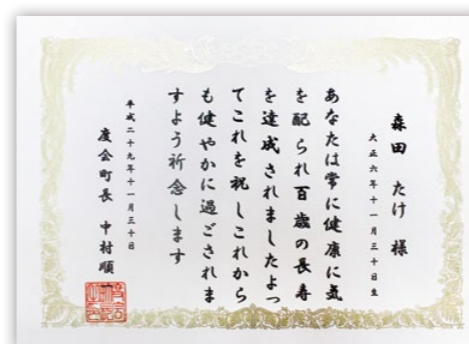 森田 たけ 様
大正六年十一月三十日生
あなたは常に健康に気
を配られ百歳の長寿
を達成されましたよっ
てこれを祝しこれから
も健やかに過ごされま
すよう祈念します
平成二十九年十一月三十日
度会町長 中村順一